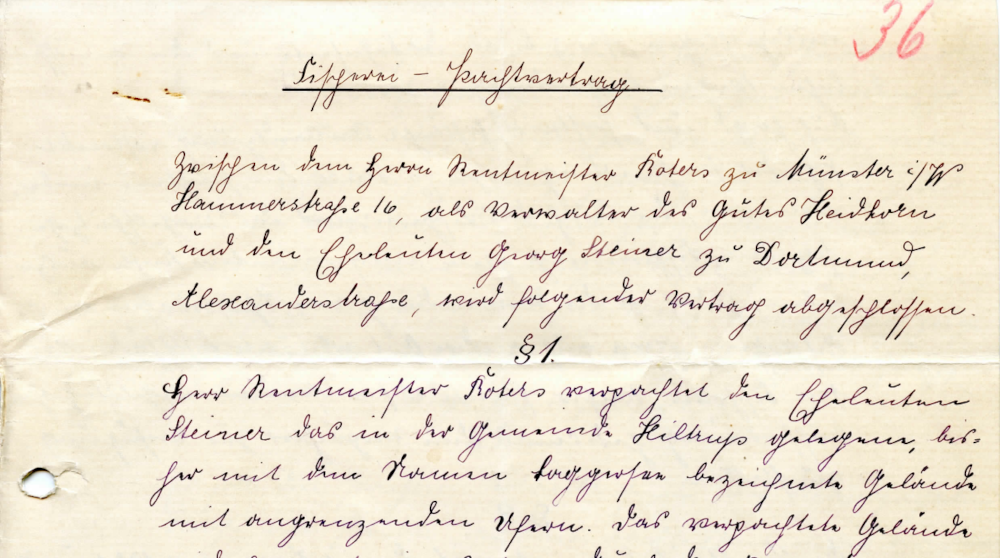 36
Fischerei - Pachtvertrag.
Zwischen dem Herrn Rentmeister Koters zu Münster i/W
Hammerstraße 16, als Verwalter des Gutes Heidhorn
und den Eheleuten Georg Steiner zu Dortmund,
Alexanderstraße, wird folgender Vertrag abgeschlossen.
§ 1.
Herr Rentmeister Koters verpachtet den Eheleuten
Steiner das in der Gemeinde Hiltrup gelegene, bis=
her mit dem Namen Baggersee bezeichnete Gelände
mit angrenzenden Ufern. Das verpachtete Gelände